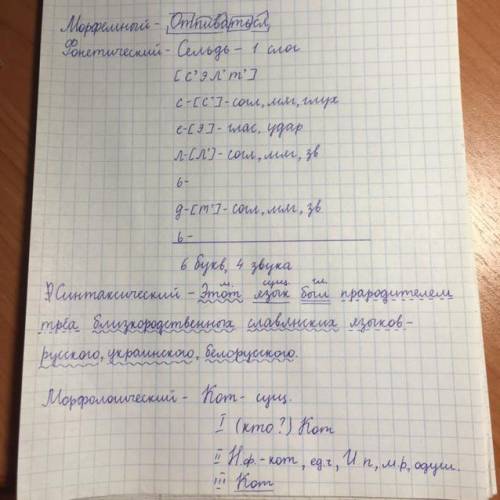 Морфемный - Отпиваться
Фонетический - Сельдь - 1 слог
[с' э л' т']
с-[с']-согл, мм, глух
е-[э]-глас, удар
л-[л']-согл, мм, зв
ь-
д-[т']-согл, мм, зв
ь-
6 букв, 4 звука
м. сущ. гл.
Синтаксический - Этот язык был прародителем
трёх близкородственных славянских языков -
русского, украинского, белорусского.
Морфологический - Кот - сущ.
I (кто?) Кот
II Н.ф.-кот, ед.ч, И.п, м.р, одуш.
III Кот